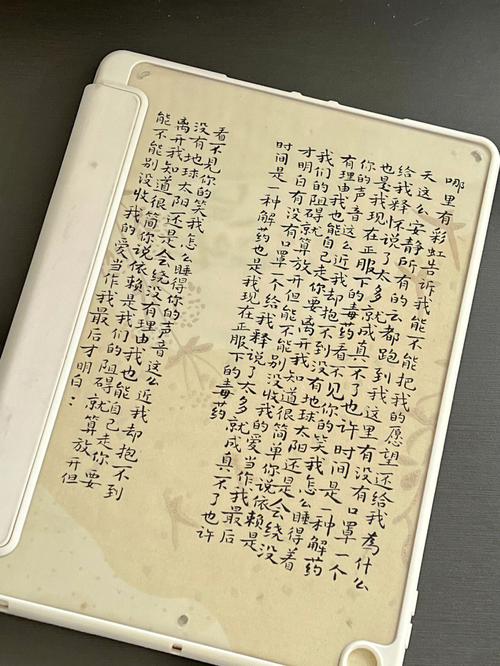 哪里有彩虹告诉我能不能把我的愿望还给我為什么
天这么安静所有的云都跑到我这里有没有口罩一个
给我释怀说了太多就成真不了也许时间是一种解药
也是我现在正服下的毒药看不见你的笑我怎么睡得着
你的声音这么近我却抱不到没有地球太阳还是会绕没
有理由我也能自己走你要离开我知道很简单你说依赖是
我们的阻碍就算放开但能不能别没收我的爱当作我最后
才明白有没有口罩一个给我释说了太多就成真不了也许
时间是一种解药也是我现在正服下的毒药
看不见你的笑我怎么睡得你的声音这么近我却抱不到
没有地球太阳还是会绕没有理由我也能自己走你要
离开我知道很简你说依赖是我们的阻碍就算放开但
能不能别没收我的爱当作我最后才明白：